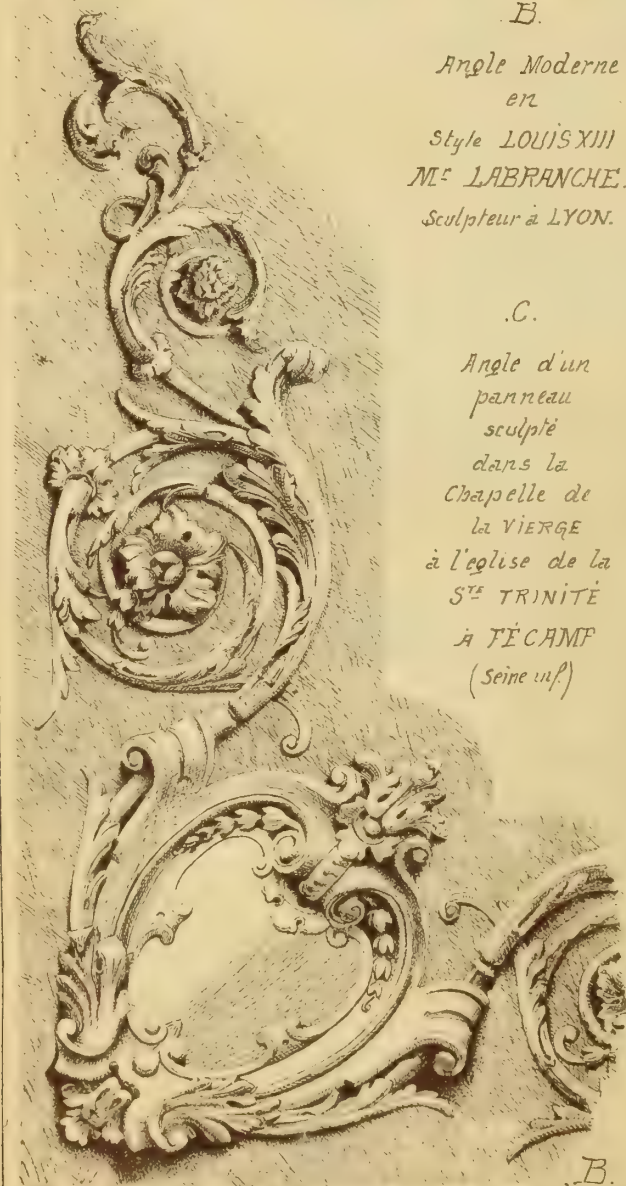 B.
Angle Moderne
en
Style LOUIS XIII
Mr LABRANCHE.
Sculpteur à LYON.
.C.
Angle d'un
panneau
sculpté
dans la
Chapelle de
la VIERGE
à l'eglise de la
STE TRINITÉ
A FÉCAMP
(Seine inf.)
B.